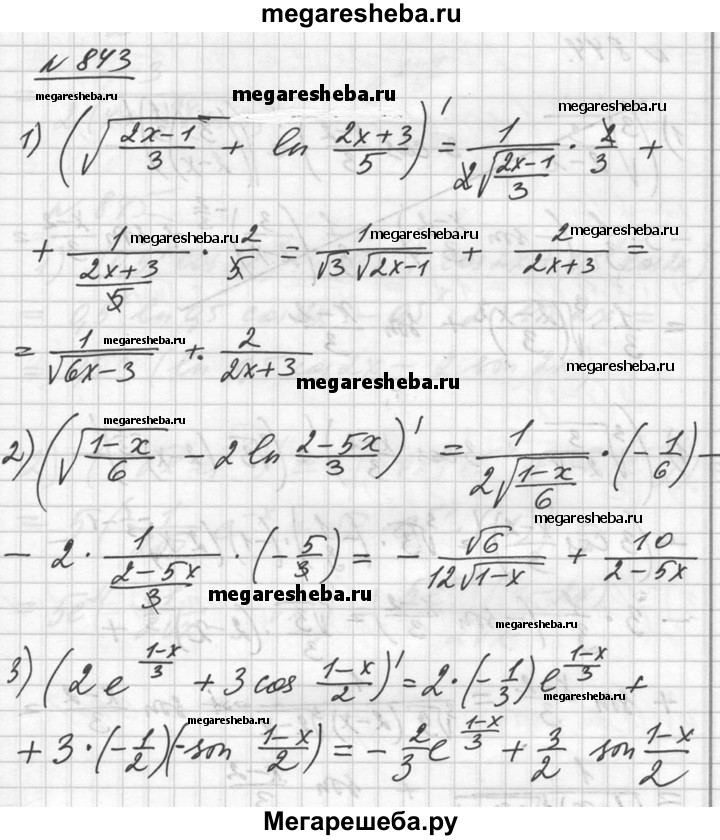 megaresheba.ru
№ 843
megaresheba.ru
megaresheba.ru
1) (√((2x-1)/3) + ln (2x+3)/5)' = 1/(2√((2x-1)/3)) · 2/3 +
+ 1/((2x+3)/5) · 2/5 = 1/(√3 √(2x-1)) + 2/(2x+3) =
megaresheba.ru
megaresheba.ru
megaresheba.ru
= 1/√(6x-3) + 2/(2x+3)
megaresheba.ru
megaresheba.ru
megaresheba.ru
megaresheba.ru
2) (√((1-x)/6) - 2 ln (2-5x)/3)' = 1/(2√((1-x)/6)) · (-1/6) -
megaresheba.ru
- 2 · 1/((2-5x)/3) · (-5/3) = - √6/(12√(1-x)) + 10/(2-5x)
megaresheba.ru
megaresheba.ru
3) (2e^((1-x)/3) + 3 cos (1-x)/2)' = 2·(-1/3) e^((1-x)/3) +
megaresheba.ru
megaresheba.ru
+ 3·(-1/2)(-son (1-x)/2) = - 2/3 e^((1-x)/3) + 3/2 son (1-x)/2
megaresheba.ru
megaresheba.ru
Мегарешеба.ру